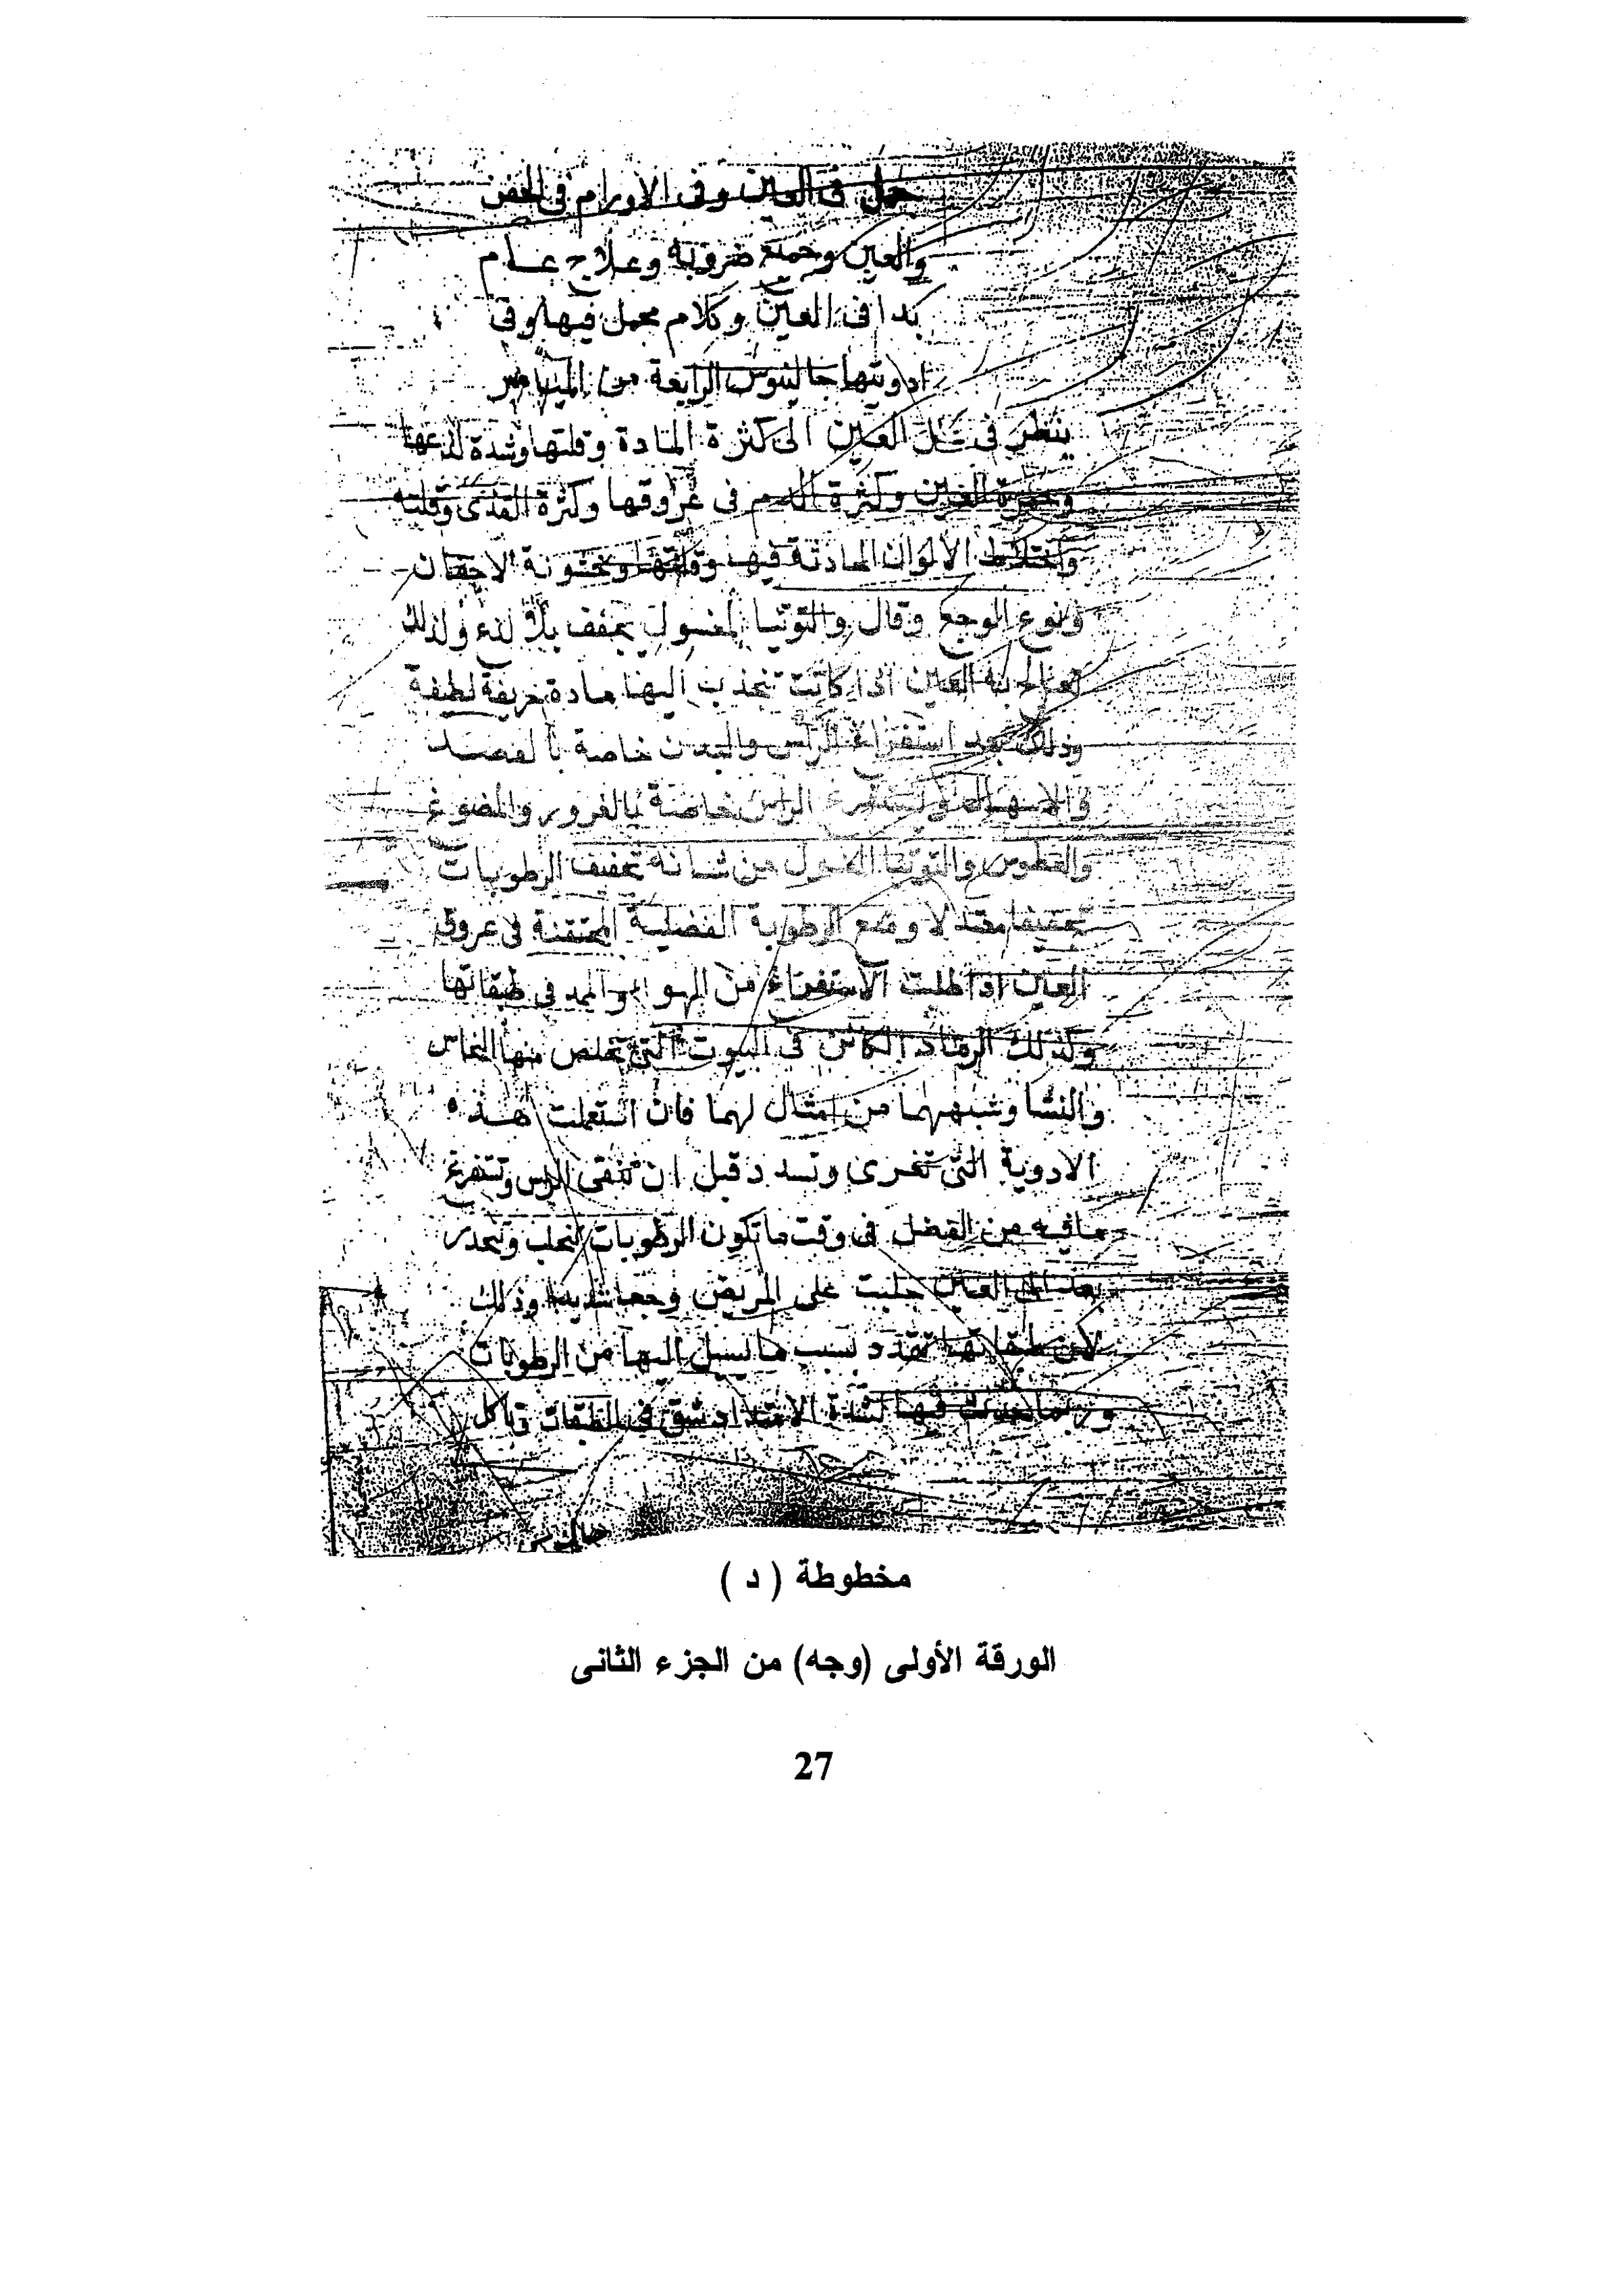 جمل فى العين وفى الاورام فى الجفن
والعين وجميع ضروبه وعلاج عام
فى العين وكلام مجمل فيها وفى
ادويتها جالينوس الرابعة من الميامر
ينظر فى علل العين الى كثرة المادة وقلتها وشدة لذعها
وحمرة العين وكثرة الدم فى عروقها وكثرة القذى وقلته
واختلاط الالوان الحادثة فيها وقلتها وخشونة الاجفان
ونوع الوجع وقال والتوتيا المغسول يجفف بلا لذع ولذلك
تعالج به العين اذا كانت تنجذب اليها مادة حريفة لطيفة
وذلك بعد استفراغ الراس والبدن خاصة بالفصد
والاسهال ويستفرغ الراس خاصة بالغرور والمضوغ
والعطوس والتوتيا المغسول من شانه تجفيف الرطوبات
تجفيفا معتدلا ومنع الرطوبة الفضلية المحتقنة فى عروق
العين اذا طلبت الاستفراغ من فى طبقاتها
وكذلك الرماد الكائن فى البيوت التى تخلص منها النحاس
والنشا وشبههما من امثال لهما فان استعملت هذه
الادوية التى تغرى وتسدد قبل ان تنقى الراس وتستفرغ
مافيه من الفضل فى وقت ماتكون الرطوبات تنحلب وتنحدر
بعد الى العين جلبت على المريض وجعا شديدا وذلك
لان طبقاتها تمدد بسبب مايسيل اليها من الرطوبات
وربما حدث فيها لشدة الامتداد شق فى الطبقات وتاكل
مخطوطة ( د )
الورقة الأولى (وجه) من الجزء الثانى
27